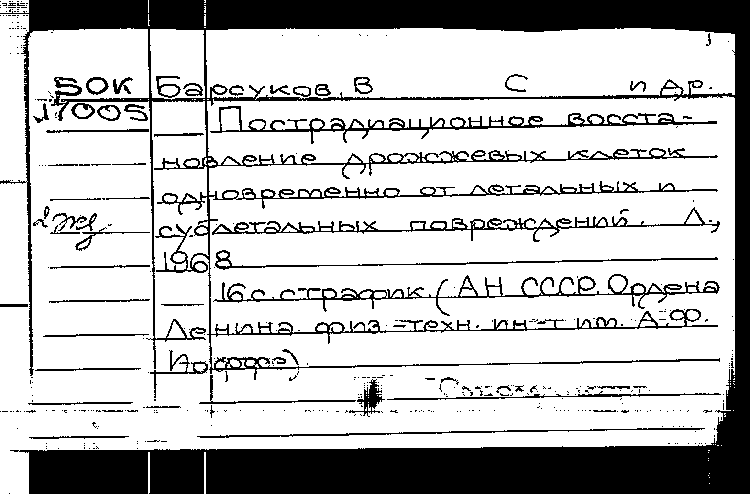 БОК Барсуков, В С и др.
17005 Пострадиационное восста-
новление дрожжевых клеток
одновременно от летальных и
2 жд сублетальных повреждений. Л.,
1968
16 с. с график. (АН СССР. Ордена
Ленина физ.-техн. ин-т им. А.Ф.
Иоффе)